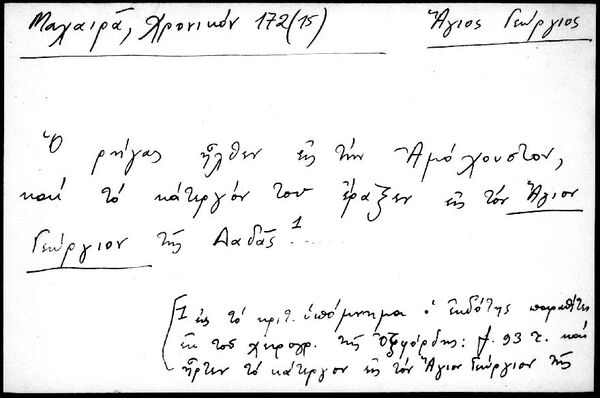 Μαχαιρᾶ, Χρονικόν 172(15)
Ἅγιος Γεώργιος
Ὁ ρήγας ἦλθεν εἰς τὴν Ἀμόχουστον,
καὶ τὸ κάτεργόν του ἔραξεν εἰς τὸν Ἅγιον
Γεώργιον τῆς Δαδᾶς 1.....
[1 εἰς τὸ κριτ. ὑπόμνημα ὁ ἐκδότης παραθέτει
ἐκ τοῦ χειρογρ. τῆς Ὀξφόρδης: f. 93 τ. καὶ
ἦρτεν τὸ κάτεργον εἰς τὸν Ἅγιον Γεώργιον τῆς